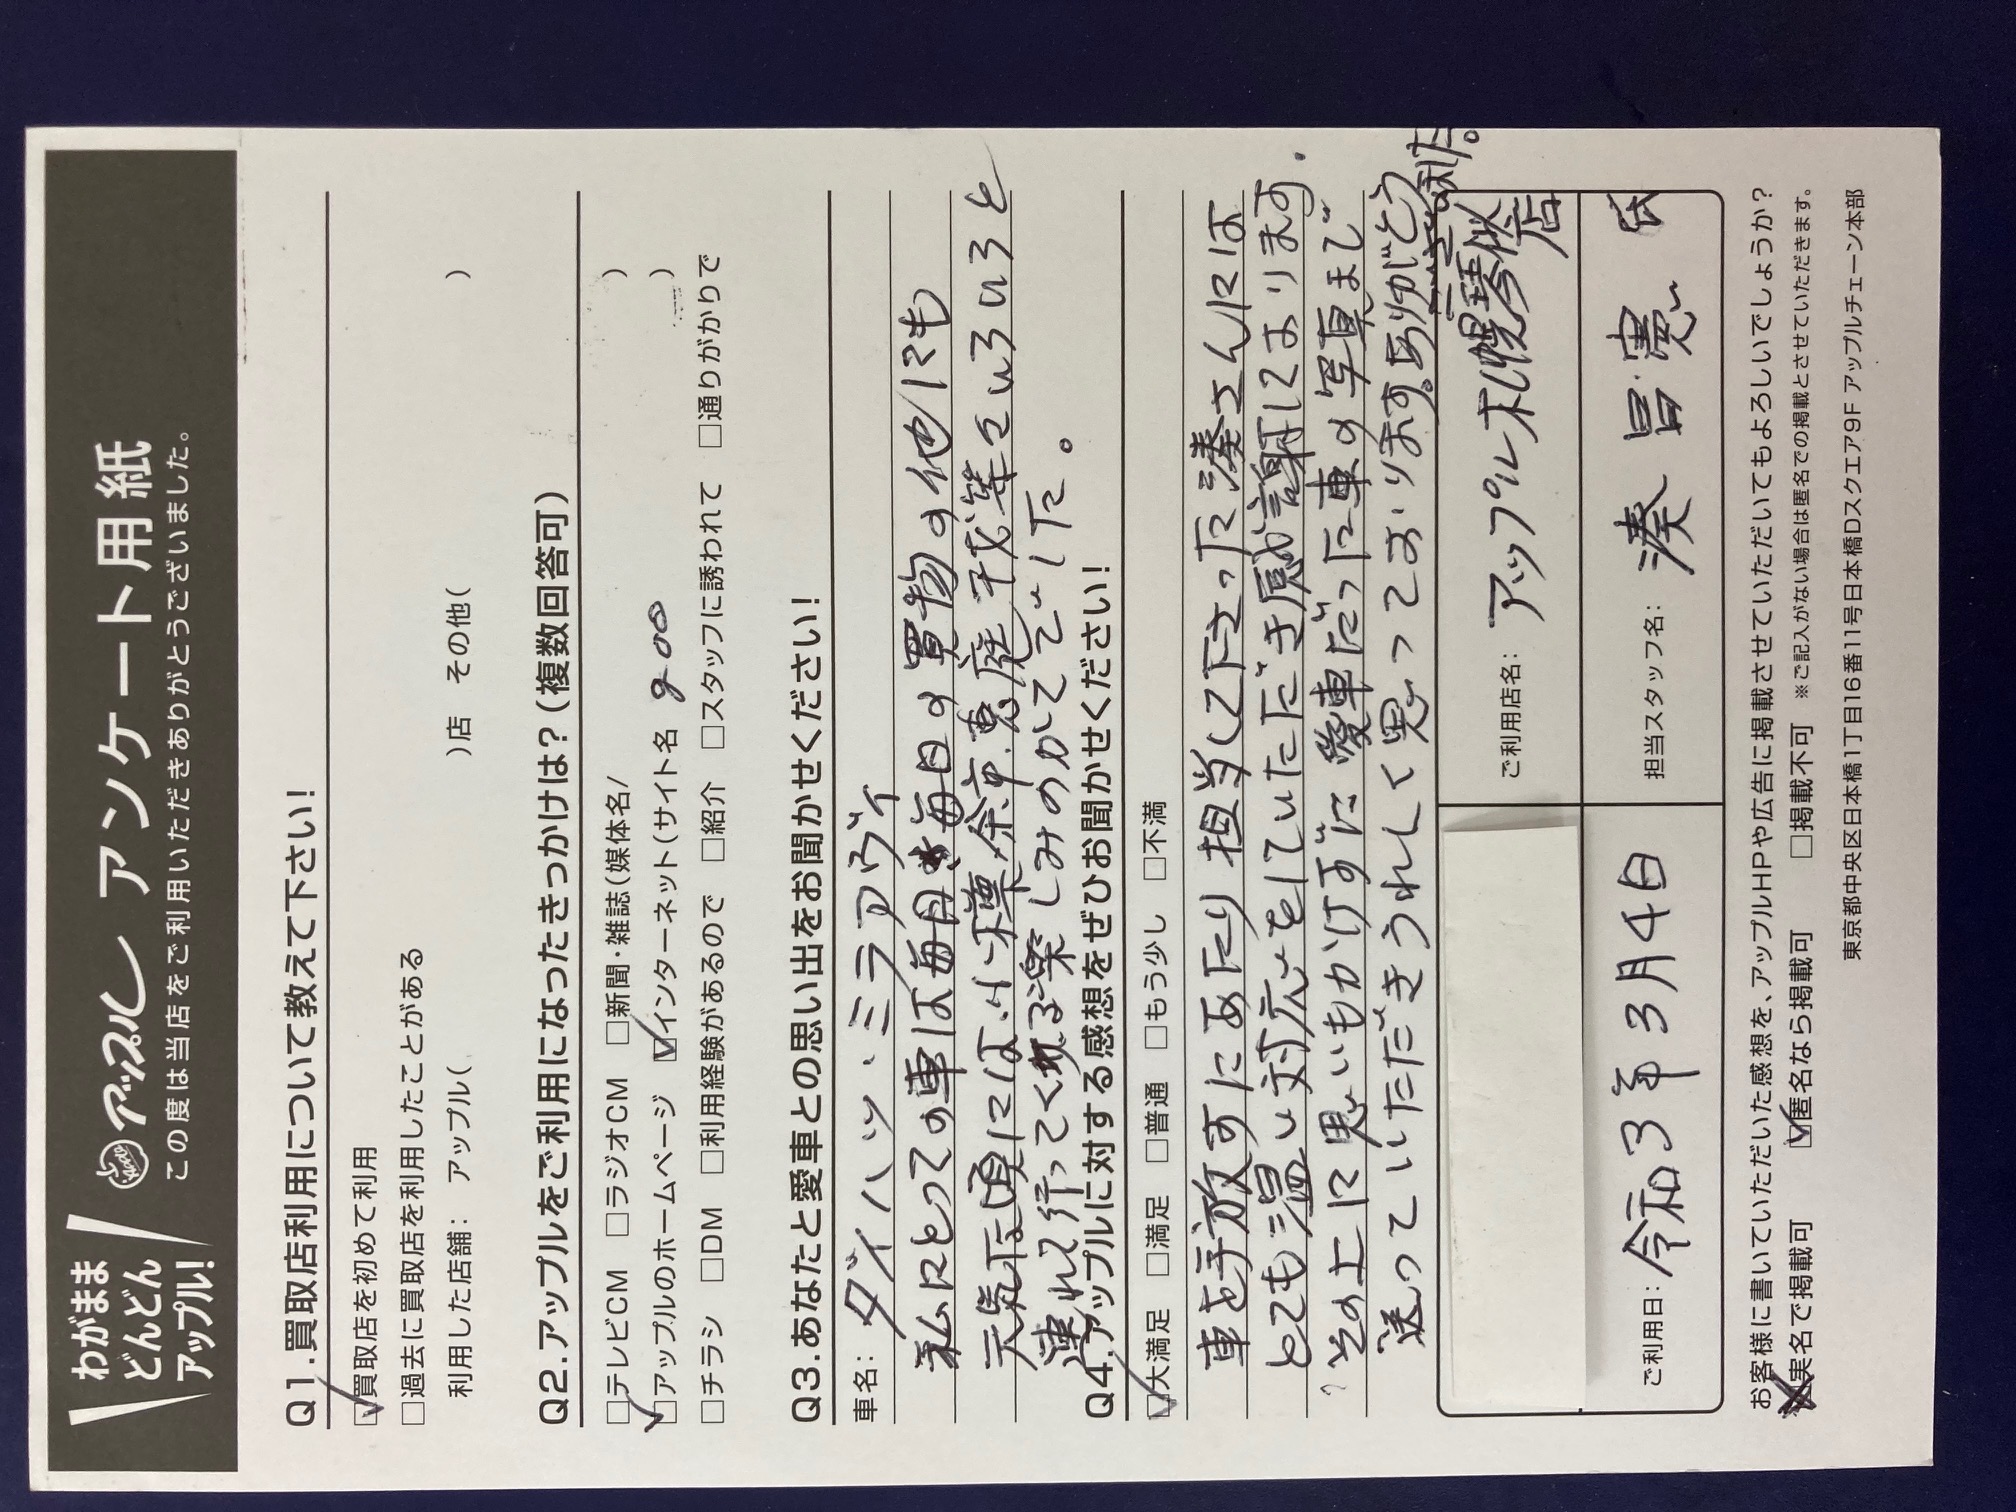 わがまま
どんどん
アップル!
アップル アンケート用紙
この度は当店をご利用いただきありがとうございました。
Q1.買取店利用について教えて下さい!
☑買取店を初めて利用
□過去に買取店を利用したことがある
利用した店舗: アップル( )店 その他( )
Q2.アップルをご利用になったきっかけは?(複数回答可)
□テレビCM □ラジオCM □新聞・雑誌(媒体名/ )
☑アップルのホームページ ☑インターネット(サイト名 )
□チラシ □DM □利用経験があるので □紹介 □スタッフに誘われて □通りがかりで
Q3.あなたと愛車との思い出をお聞かせください!
車名: ダイハツ、ミラアヴィ
私にとっての車は毎日の買物の他にも
元気な頃には、小樽、余市、恵庭、千歳等々いろいろと
連れて行ってくれる楽しみのかてでした。
Q4.アップルに対する感想をぜひお聞かせください!
☑大満足 □満足 □普通 □もう少し □不満
車を手放すにあたり担当して下さった湊さんには
とても温い対応をしていただき感謝しております。
その上に思いもかけずに愛車だった車の写真まで
送っていただきうれしく思っております。ありがとう
ございました。
ご利用店名: アップル札幌琴似店
ご利用日: 令和3年3月4日
担当スタッフ名: 湊 昌憲 氏
お客様に書いていただいた感想を、アップルHPや広告に掲載させていただいてもよろしいでしょうか?
実名で掲載可 ☑匿名なら掲載可 □掲載不可 ※ご記入がない場合は匿名での掲載とさせていただきます。
東京都中央区日本橋1丁目16番11号日本橋Dスクエア9F アップルチェーン本部